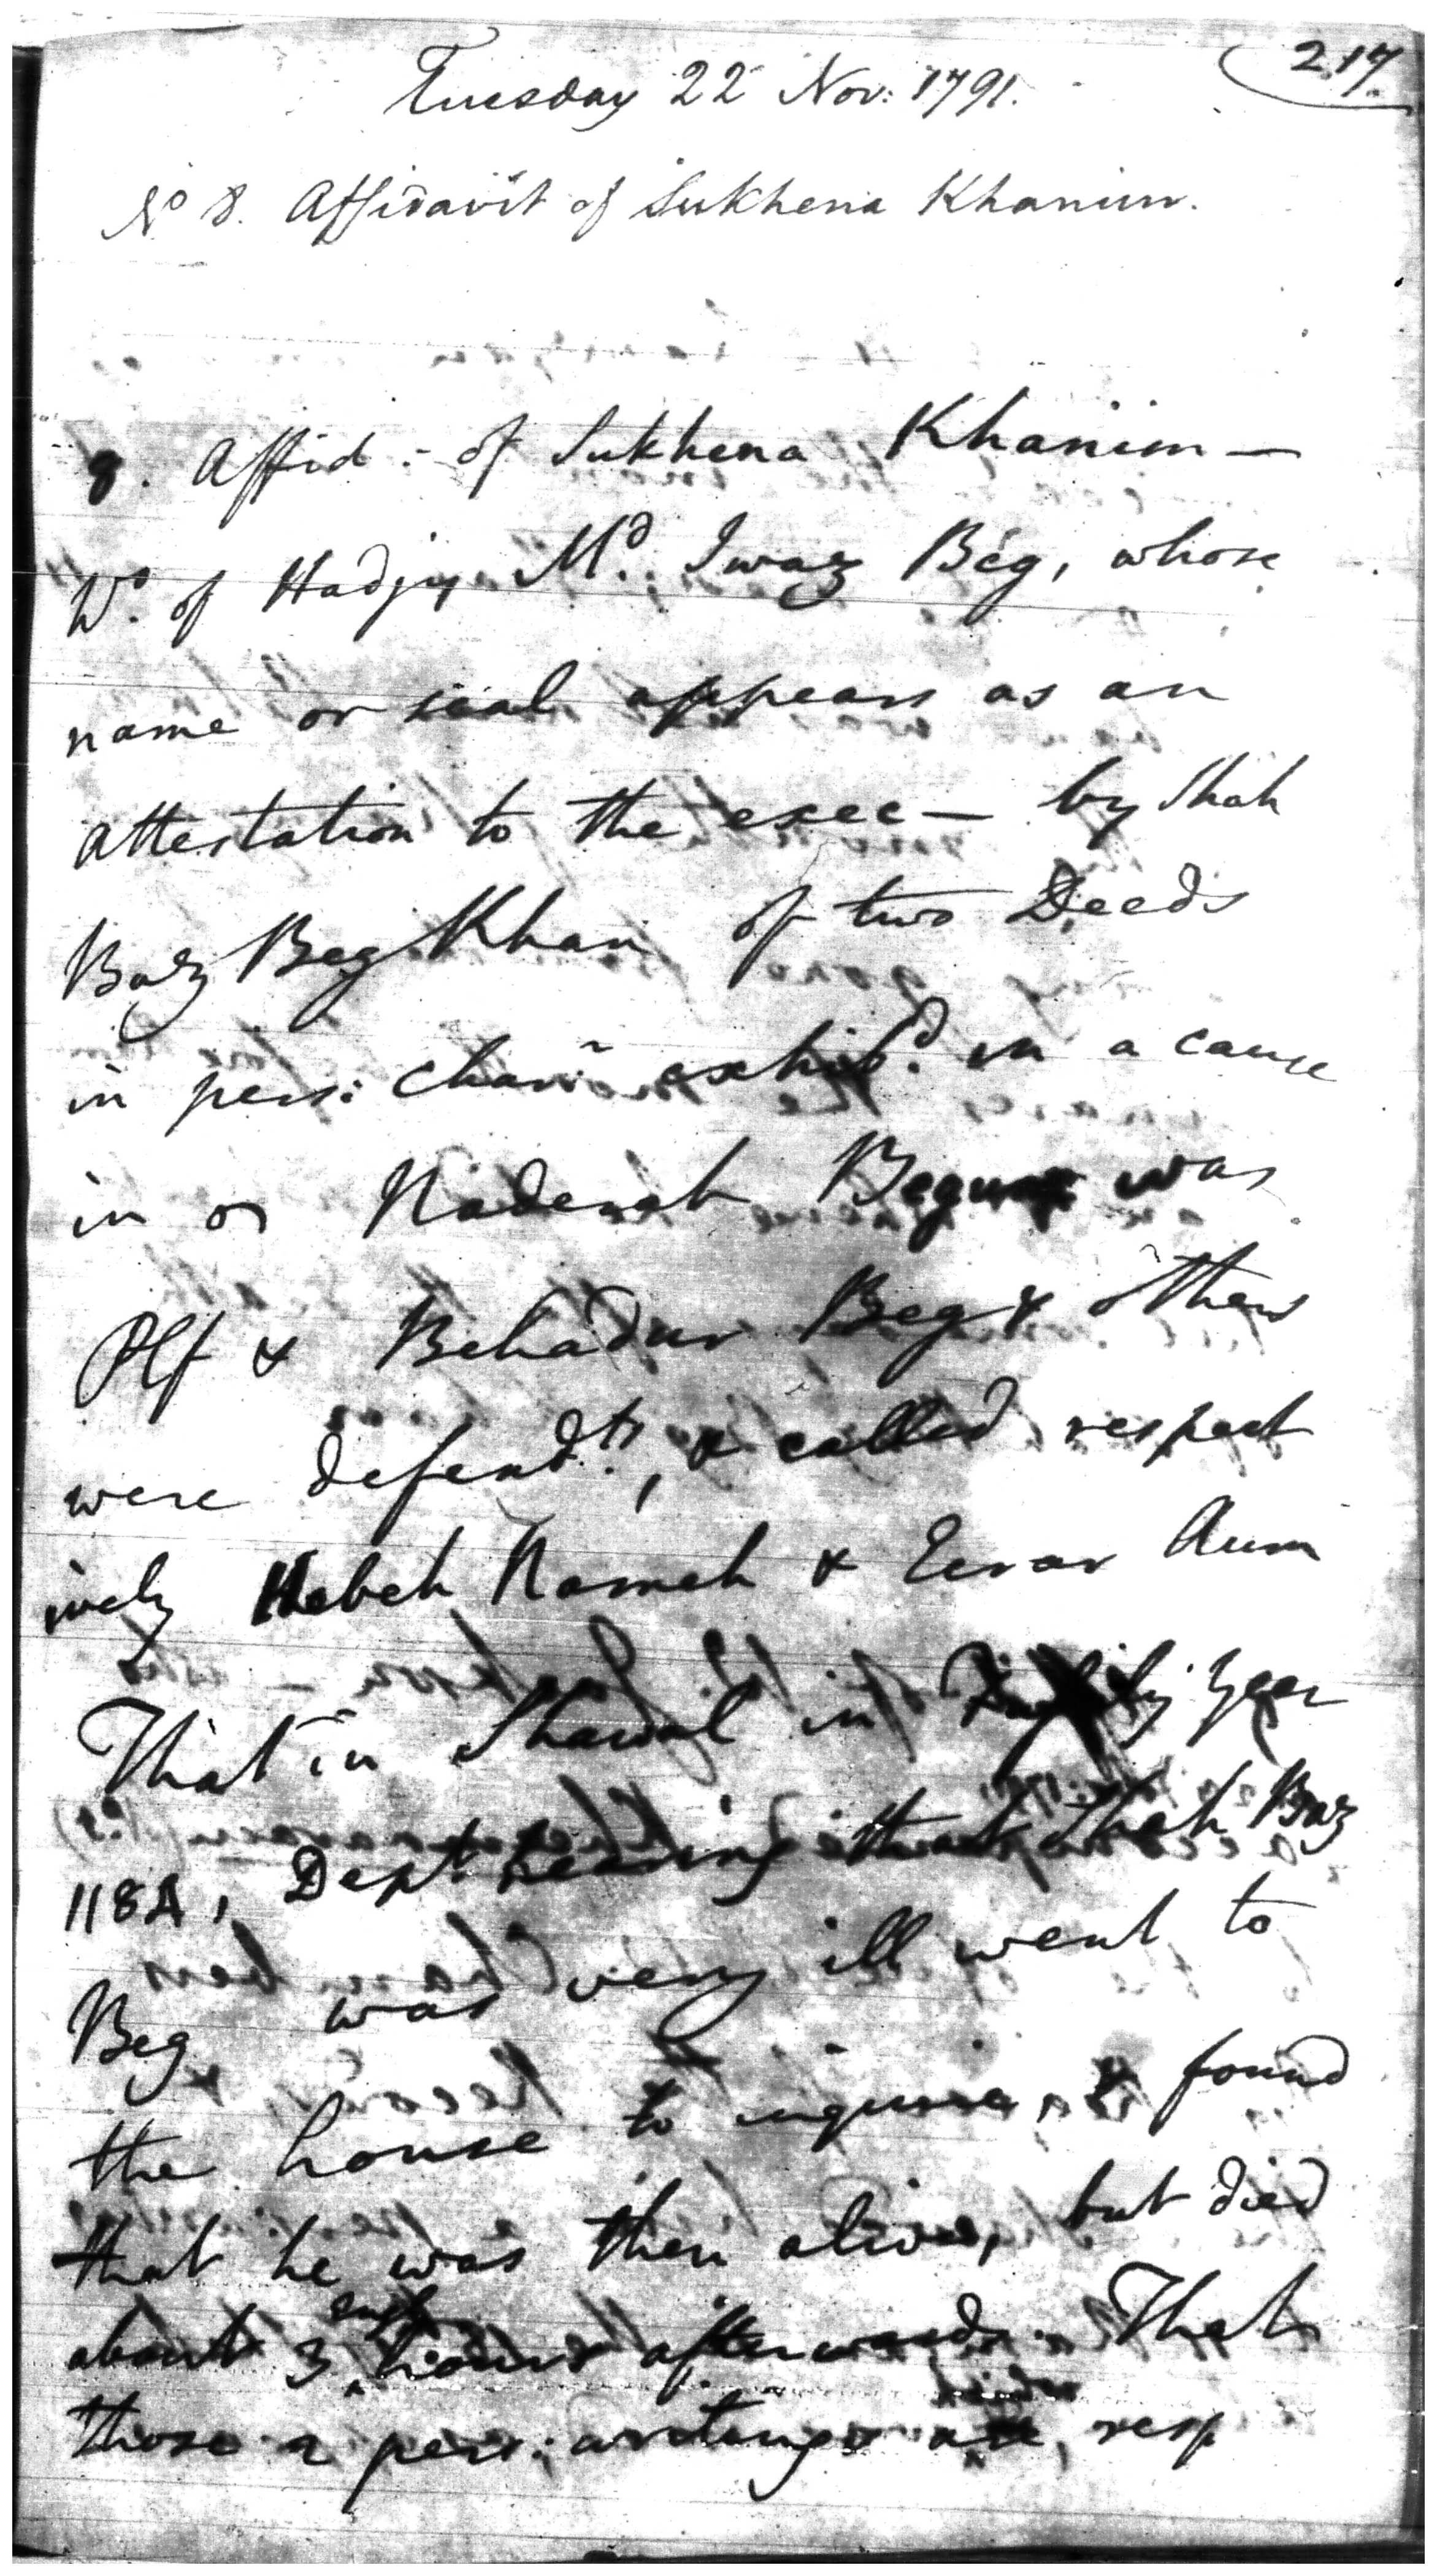 217.
Tuesday 22 Nov: 1791.
No 8. Affidavit of Sukhena Khanim.
8. Affid:- of Sukhena Khanim —
Wo. of Hadjy Md. Iwaz Beg, whose
name or seal appears as an
attestation to the exec— by Shah
Baz Beg Khan of two Deeds
in pers: char: exhibd. in a cause
in Nadereh Begum was
Plf & Behadur Beg & others
were defendts., & called respect
ively Hebeh Nameh & Ecrar Aum
That in Shawal in year
1184, Dept hearing that Shah Baz
Beg was very ill went to
the house to inquire, & found
that he was then alive, but died
about 3 hours afterwards. That
those 2 pers: are, resp